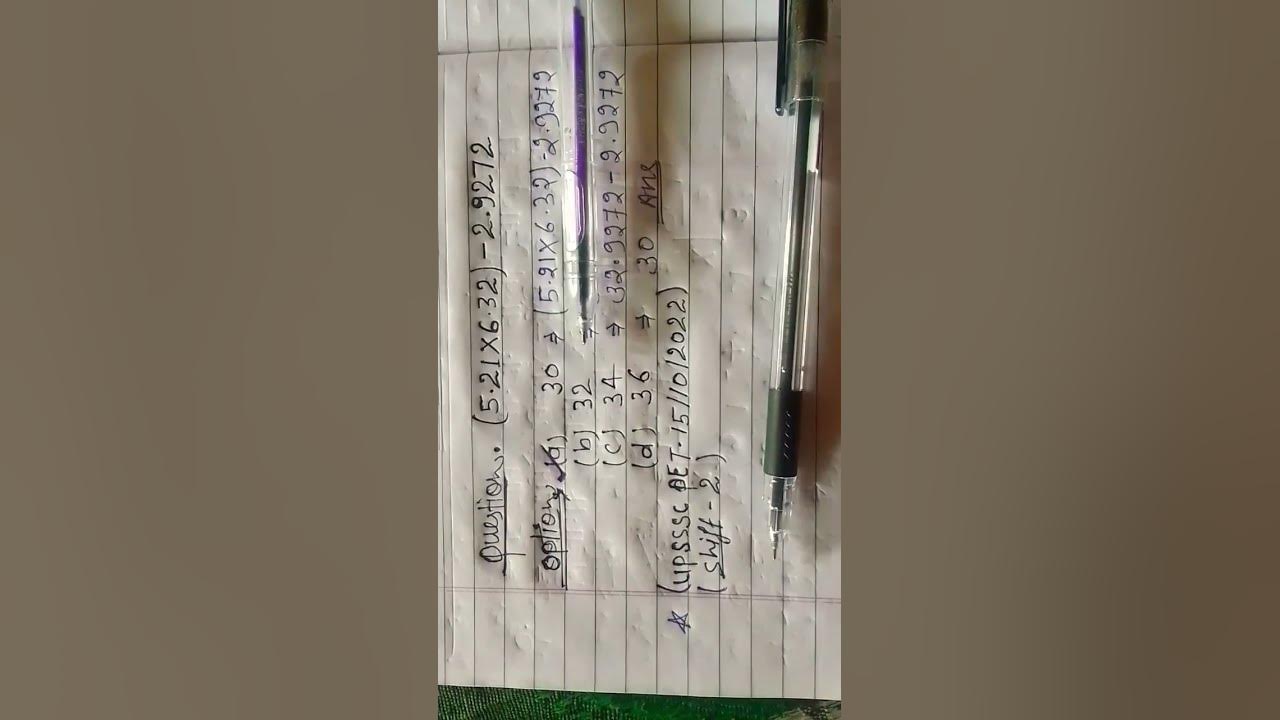 Question. (5.21×6.32)-2.9272
option, (a) 30 ⇒ (5.21×6.32)-2.9272
(b) 32 ⇒
(c) 34 ⇒ (32.9272-2.9272
(d) 36 ⇒ 30 Ans
☆ (UPSSSC PET.15/10/2022)
(Shift-2)